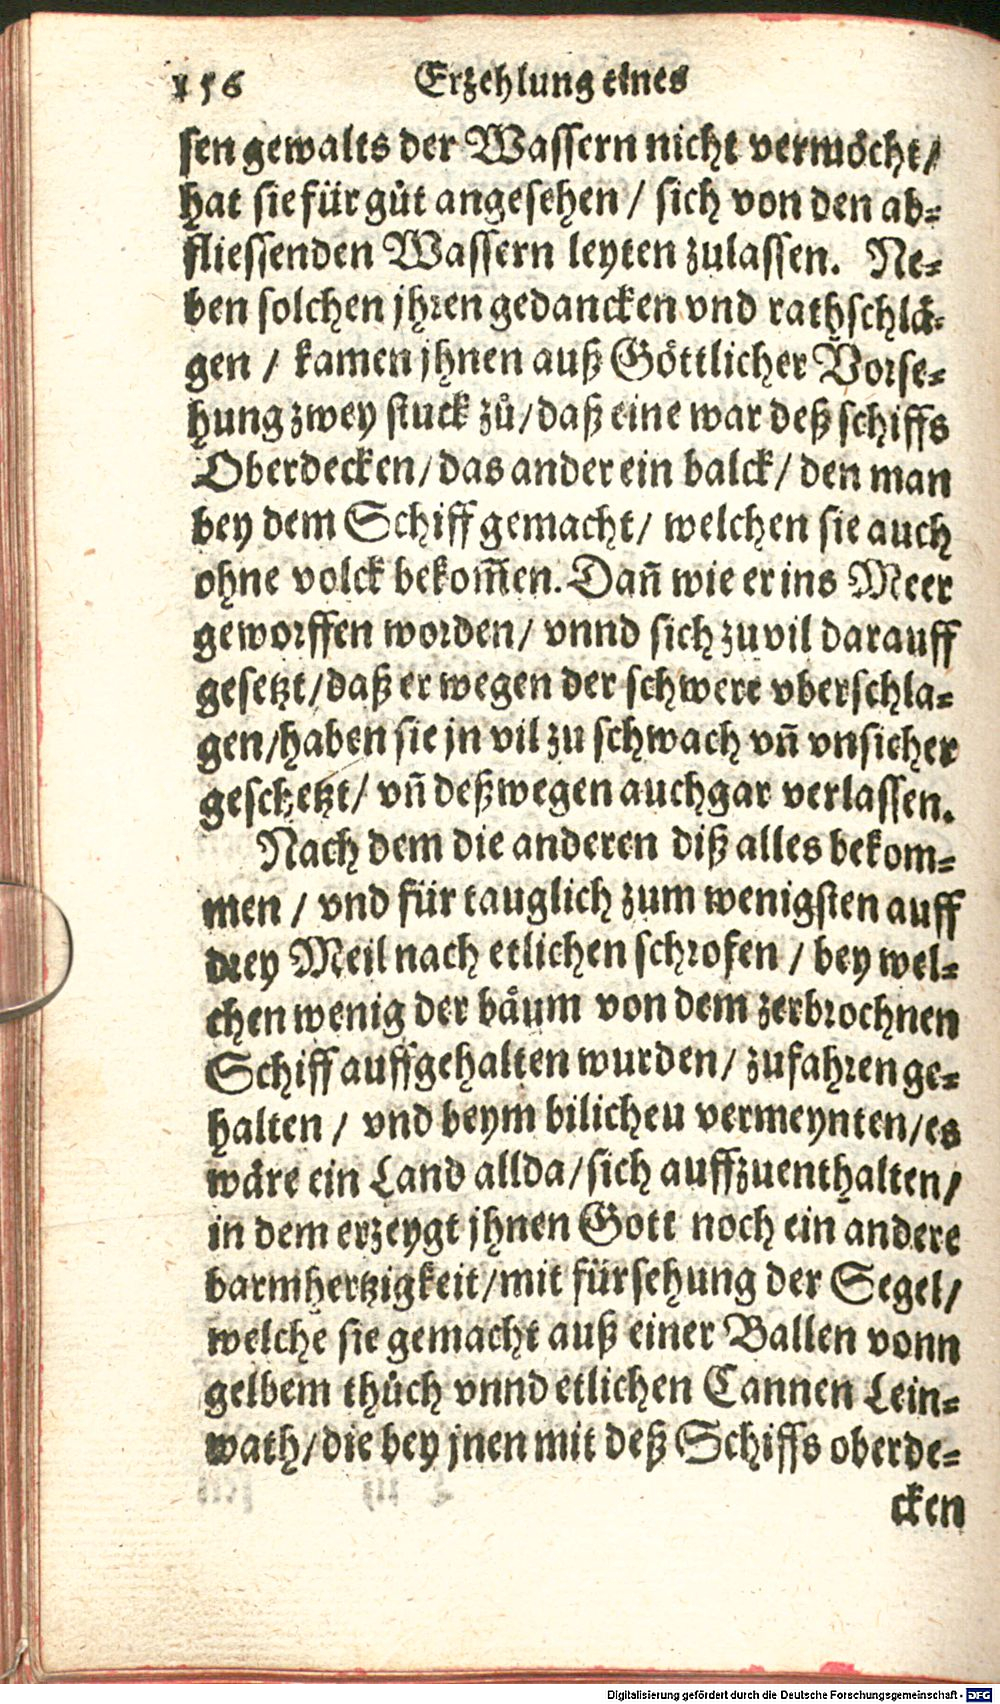 156 Erzehlung eines
sen gewalts der Wassern nicht vermöcht/
hat sie für gůt angesehen / sich von den ab-
fliessenden Wassern leyten zulassen. Ne-
ben solchen jhren gedancken vnd rathschlä-
gen / kamen jhnen auß Göttlicher Vorse-
hung zwey stuck zů/ daß eine war deß schiffs
Oberdecken/ das ander ein balck/ den man
bey dem Schiff gemacht/ welchen sie auch
ohne volck bekom̃en. Dañ wie er ins Meer
geworffen worden/ vnnd sich zu vil darauff
gesetzt/ daß er wegen der schwere vberschla-
gen/ haben sie jn vil zu schwach vñ vnsicher
geschetzt/ vñ deßwegen auch gar verlassen.
Nach dem die anderen diß alles bekom-
men / vnd für tauglich zum wenigsten auff
drey Meil nach etlichen schrofen / bey wel-
chen wenig der bäum von dem zerbrochnen
Schiff auffgehalten wurden/ zufahren ge-
halten / vnd beym bilicheu vermeynten/ es
wäre ein Land allda/ sich auffzuenthalten/
in dem erzeygt jhnen Gott noch ein andere
barmhertzigkeit/ mit fürsehung der Segel/
welche sie gemacht auß einer Ballen vonn
gelbem thůch vnnd etlichen Cannen Lein-
wath/ die bey jnen mit deß Schiffs oberde-
cken
Digitalisierung gefördert durch die Deutsche Forschungsgemeinschaft - DFG